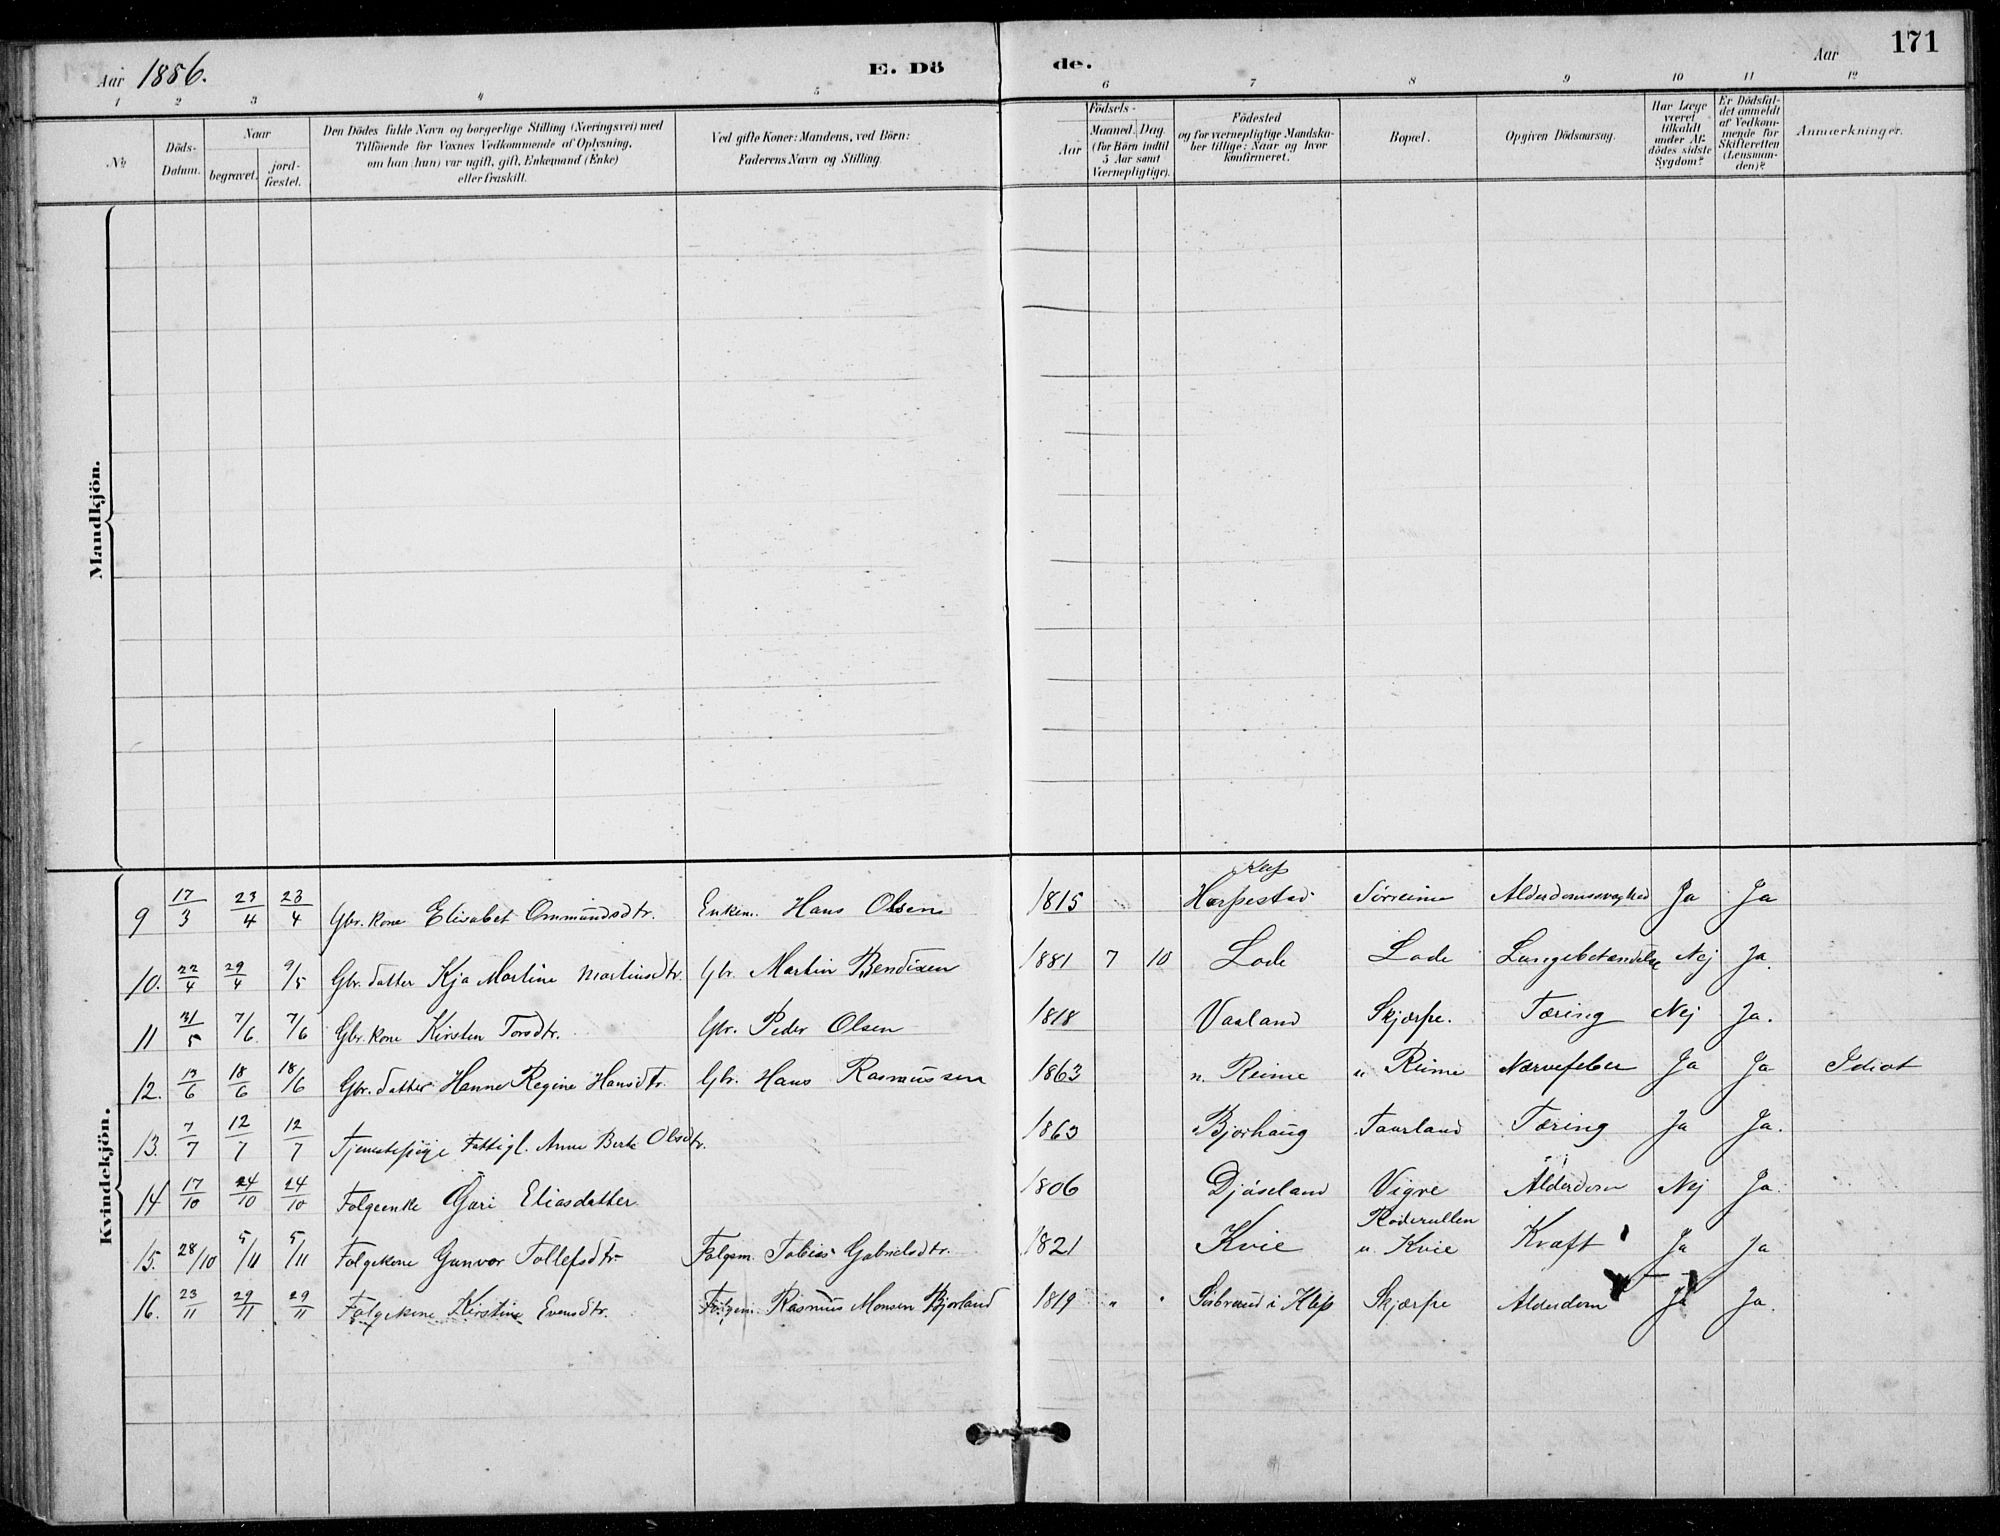 Aar 1886. E. Dö de. Aar 171
1 2 3 4 5 6 7 8 9 10 11 12
№ Döds-Datum. Naar begravet. jord-fæstet. Den Dödes fulde Navn og borgerlige Stilling (Næringsvei) med Tilföiende for Voxnes Vedkommende af Oplysning, om han (hun) var ugift, gift, Enkemand (Enke) eller fraskilt. Ved gifte Koner: Mandens, ved Börn: Faderens Navn og Stilling. Födsels- Aar Maaned. Dag. (for Börn indtil 5 Aar samt Værnepligtige). Födested og for værnepligtige Mandskaber tillige: Naar og hvor konfirmeret. Bopæl. Opgiven Dödsaarsag. Har Læge været tilkaldt under Afdödes sidste Sygdom? Er Dödsfaldet anmeldt af Vedkommende for Skifteretten (Lensmanden)? Anmærkninger.
Mandkjön.
Kvindekjön.
9 17/3 23/4 23/4 Gbr. kone Elisabet Ommundsdtr. Enkem. Hans Olsen 1815 Klep Harpestad Sørreime Alderdomssvaghed Ja Ja
10. 22/4 29/4 9/5 Gbr. datter Kja Martine Martinsdtr. Gbr. Martin Bendixen 1881 7 10 Lode Lode Lungebetændelse Nej Ja.
11 31/5 7/6 7/6 Gbr. kone Kirsten Torsdtr. Gbr. Peder Olsen 1818 Vaaland Skjærpe. Tæring Nej Ja.
12. 13/6 18/6 18/6 Gbr. datter Hanne Regine Hansdtr. Gbr. Hans Rasmussen 1863 n. Reime n. Reime Nervefeber Ja Ja Idiot
13. 7/7 12/7 12/7 Tjenestepige Fattigl. Anne Berte Olsdtr. 1863 Bjorhaug Taarland Tæring Ja Ja.
14 17/10 24/10 24/10 Folgeenke Guri Eliasdatter 1806 Djøseland Vigre Alderdom Nej Ja.
15. 28/10 5/11 5/11 Folgekone Gunvor Tollefsdtr. Folgem. Tobias Gabrielsdtr. 1821 Kvie u. Kvie Kræft Ja Ja
16. 23/11 29/11 29/11 Folgekone Kirstine Evensdtr. Folgem. Rasmus Monsen Bjorland 1819 " " i Klep Skjærpe Alderdom Ja Ja.